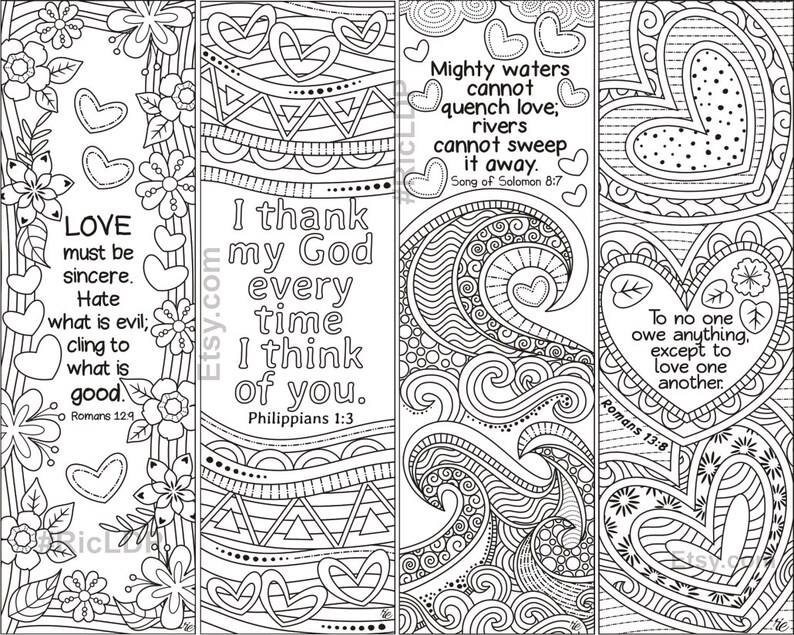 LOVE
must be
sincere.
Hate
what is evil;
cling to
what is
good.
Romans 12:9
#RicLDP
I thank
my God
every
time
I think
of you.
Philippians 1:3
Etsy.com
Mighty waters
cannot
quench love;
rivers
cannot sweep
it away.
Song of Solomon 8:7
#RicLDP
To no one
owe anything,
except to
love one
another.
Romans 13:8
Etsy.com